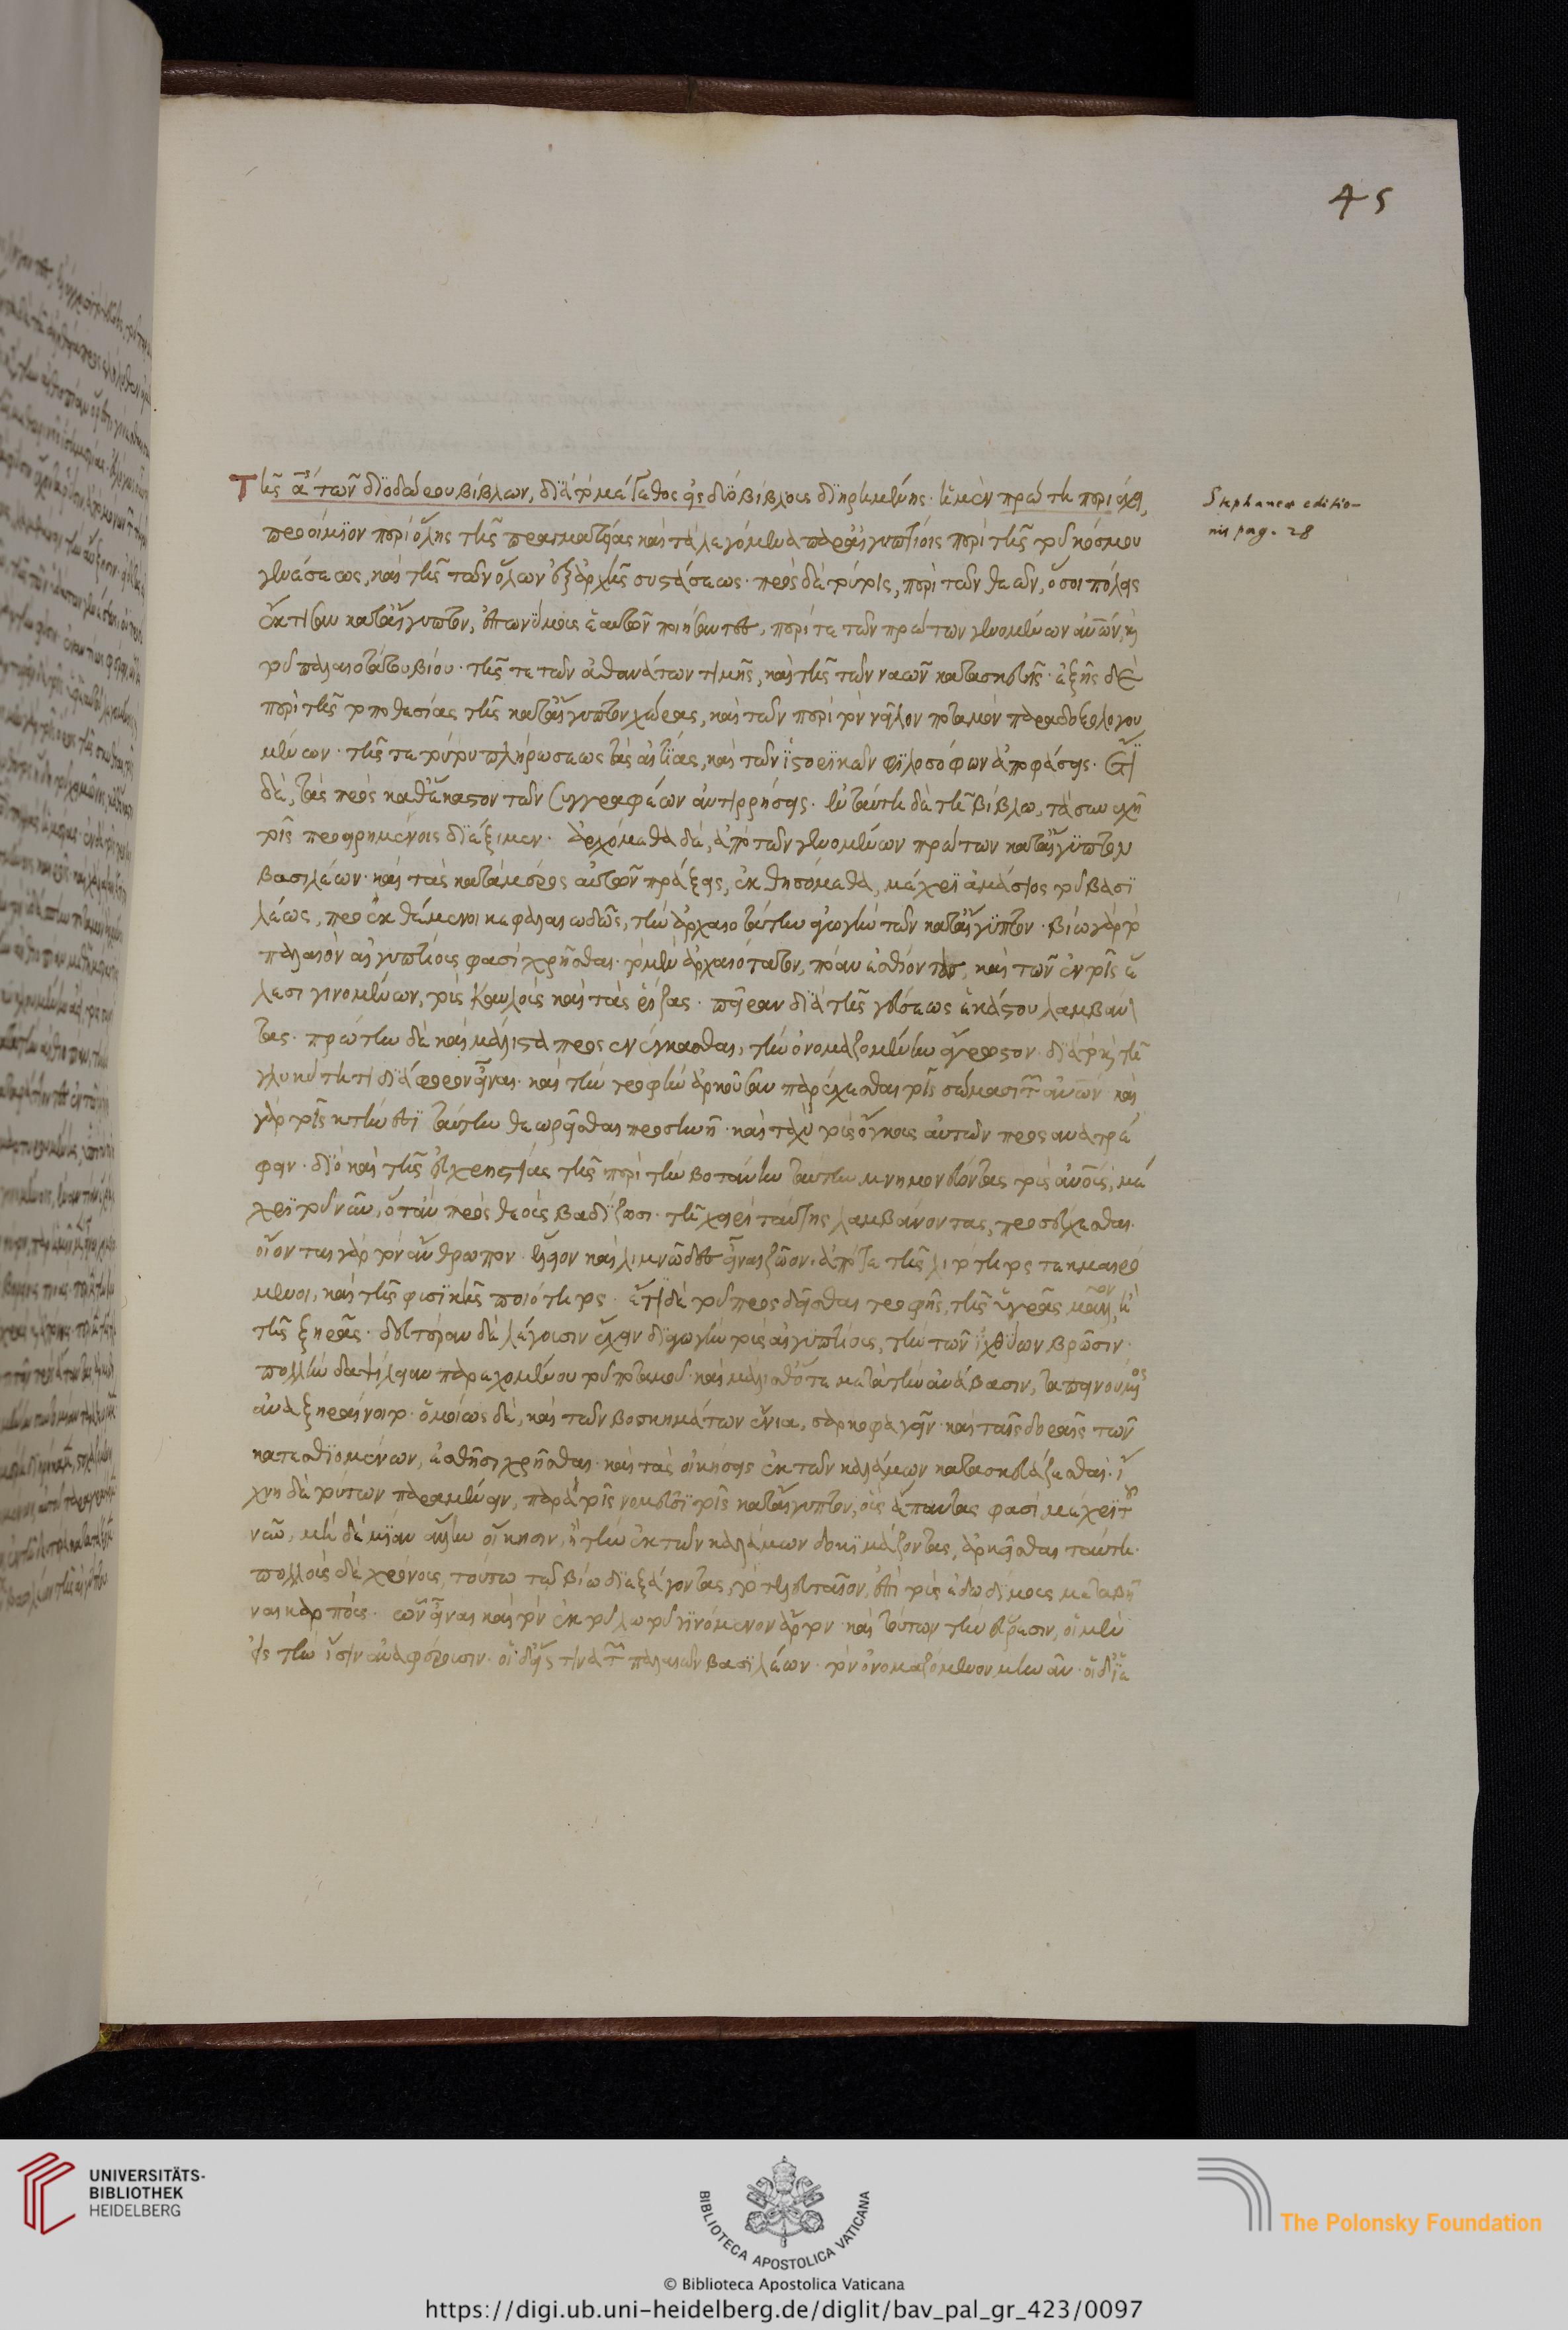 45
Τῆς α' τῶν διοδώρου βίβλων, διὰ τὸ μέγεθος εἰς δύο βίβλους διῃρημένης· ἡ μὲν πρώτη περιέχει,
Stephaneæ editio-
nis pag. 28
προοίμιον περὶ ὅλης τῆς πραγματείας καὶ τὰ λεγόμενα παρ' αἰγυπτίοις περὶ τῆς τοῦ κόσμου
γενέσεως, καὶ τῆς τῶν ὅλων ἐξ ἀρχῆς συστάσεως· πρὸς δὲ τούτοις, περὶ τῶν θεῶν, ὅσοι πόλεις
ἔκτισαν κατ' αἴγυπτον, ἐπωνύμους ἑαυτῶν ποιήσαντες, περί τε τῶν πρώτων γενομένων ἀνων, καὶ
τοῦ παλαιοτάτου βίου· τῆς τε τῶν ἀθανάτων τιμῆς, καὶ τῆς τῶν ναῶν κατασκευῆς· ἑξῆς δὲ
περὶ τῆς τοποθεσίας τῆς κατ' αἴγυπτον χώρας, καὶ τῶν περὶ τὸν νεῖλον ποταμὸν παραδοξολογου
μένων· τῆς τε τούτου πληρώσεως τὰς αἰτίας, καὶ τῶν ἱστορικῶν φιλοσόφων ἀποφάσεις· ἔτι
δὲ, τὰς πρὸς καθ' ἕκαστον τῶν συγγραφέων ἀντιρρήσεις. ἐν ταύτῃ δὲ τῇ βίβλῳ, τὰ συνεχῆ
τοῖς προειρημένοις διέξιμεν· ἀρχόμεθα δὲ, ἀπὸ τῶν γενομένων πρώτων κατ' αἴγυπτον
βασιλέων· καὶ τὰς κατὰ μέρος αὐτῶν πράξεις, ἐκθησόμεθα, μέχρι ἀμάσιος τοῦ βασι
λέως, προεκθέμενοι κεφαλαιωδῶς, τὴν ἀρχαιοτάτην ἀγωγὴν τῶν κατ' αἴγυπτον· βίῳ γὰρ τὸ
παλαιὸν αἰγυπτίους φασὶ χρῆσθαι· τὸ μὲν ἀρχαιότατον, πόαν ἐσθίοντας, καὶ τῶν ἐν τοῖς ἕ
λεσι γινομένων, τοὺς καυλοὺς καὶ τὰς ῥίζας· πεῖραν διὰ τῆς γεύσεως ἑκάστου λαμβάνον
τας· πρώτην δὲ καὶ μάλιστα προσενέγκασθαι, τὴν ὀνομαζομένην ἄγρωστον· διὰ τὸ καὶ τῇ
γλυκύτητι διάφορον εἶναι· καὶ τὴν τροφὴν ἀρκοῦσαν παρέχεσθαι τοῖς σώμασι τῶν ἀνων· καὶ
γὰρ τοῖς κτήνεσι ταύτην θεωρεῖσθαι προσηνῆ· καὶ ταχὺ τοὺς ὄγκους αὐτῶν προσανατρέ
φειν· διὸ καὶ τῆς εὐχρηστίας τῆς περὶ τὴν βοτάνην ταύτην μνημονεύοντας τοὺς ἀνους, μέ
χρι τοῦ νῦν, ὅταν πρὸς θεοὺς βαδίζωσι· τῇ χειρὶ ταύτης λαμβάνοντας, προσεύχεσθαι·
οἴονται γὰρ τὸν ἄνθρωπον ἕλειον καὶ λιμνῶδες εἶναι ζῷον· ἀπό τε τῆς λιτότητος τεκμαιρό
μενοι, καὶ τῆς φυσικῆς ποιότητος· ἔτι δὲ τοῦ προσδεῖσθαι τροφῆς, τῆς ὑγρᾶς μᾶλλον, ἢ
τῆς ξηρᾶς· δευτέραν δὲ λέγουσιν ἔχειν διαγωγὴν τοὺς αἰγυπτίους, τὴν τῶν ἰχθύων βρῶσιν·
πολλὴν δαψίλειαν παρεχομένου τοῦ ποταμοῦ· καὶ μάλισθ' ὅτε μετὰ τὴν ἀνάβασιν, ταπεινούμενος
ἀναξηραίνοιτο· ὁμοίως δὲ, καὶ τῶν βοσκημάτων ἔνια, σαρκοφαγεῖν· καὶ ταῖς δοραῖς τῶν
κατεσθιομένων, ἐσθῆσι χρῆσθαι· καὶ τὰς οἰκήσεις ἐκ τῶν καλάμων κατασκευάζεσθαι· ἴ
χνη δὲ τούτων παραμένειν, παρὰ τοῖς νομεῦσι τοῖς κατ' αἴγυπτον, οὓς ἅπαντας φασί, μέχρι τοῦ
νῦν, μηδεμίαν ἄλλην οἴκησιν, ἢ τὴν ἐκ τῶν καλάμων δοκιμάζοντας, ἀρκεῖσθαι ταύτῃ·
πολλοὺς δὲ χρόνους, τούτῳ τῷ βίῳ διεξάγοντας, τὸ τελευταῖον, ἐπὶ τοὺς ἐδωδίμους μεταβῆ
ναι καρπούς· ὧν εἶναι καὶ τὸν ἐκ τοῦ λωτοῦ γινόμενον ἄρτον· καὶ τούτων τὴν εὕρεσιν, οἱ μὲν
εἰς τὴν ἶσιν ἀναφέρουσιν· οἱ δ' εἴς τινα τῶν παλαιῶν βασιλέων· τὸν ὀνομαζόμενον μηνᾶν· οἱ δ' ἱε
UNIVERSITÄTS-
BIBLIOTHEK
HEIDELBERG
BIBLIOTECA APOSTOLICA VATICANA
The Polonsky Foundation
© Biblioteca Apostolica Vaticana
https://digi.ub.uni-heidelberg.de/diglit/bav_pal_gr_423/0097